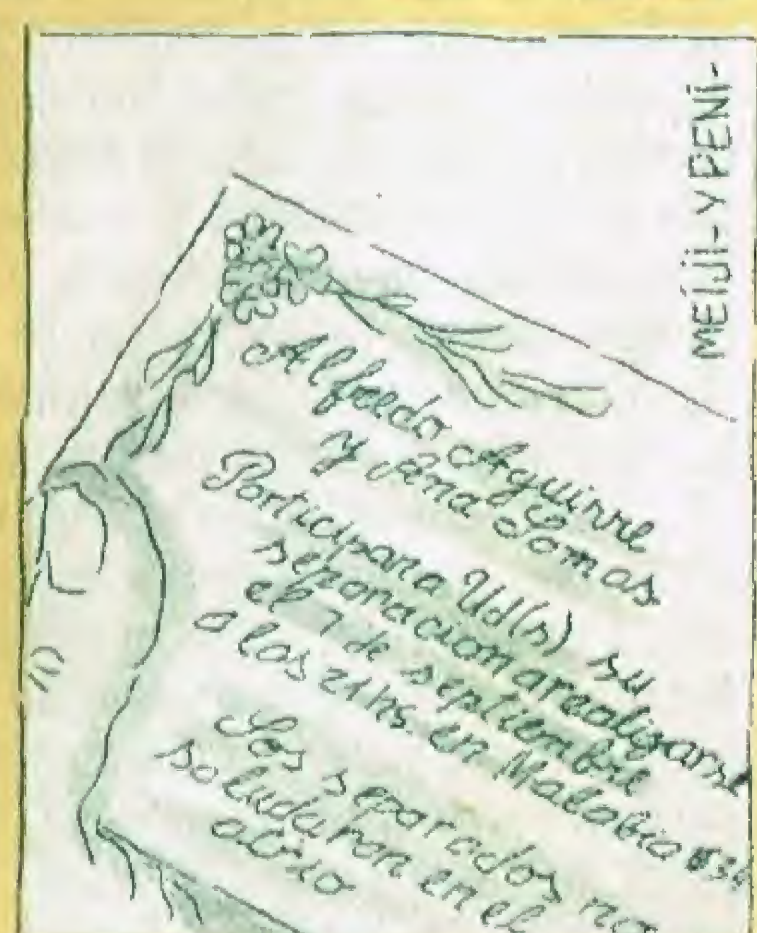 MEIJI- Y PENI-
Alfredo Aguirre
y Ana Lomas
Participan a Ud(s) su
separacion a realizarse
el 7 de septiembre
a las 21 hs. en Malabia
Los separados no
saludaran en el
atrio